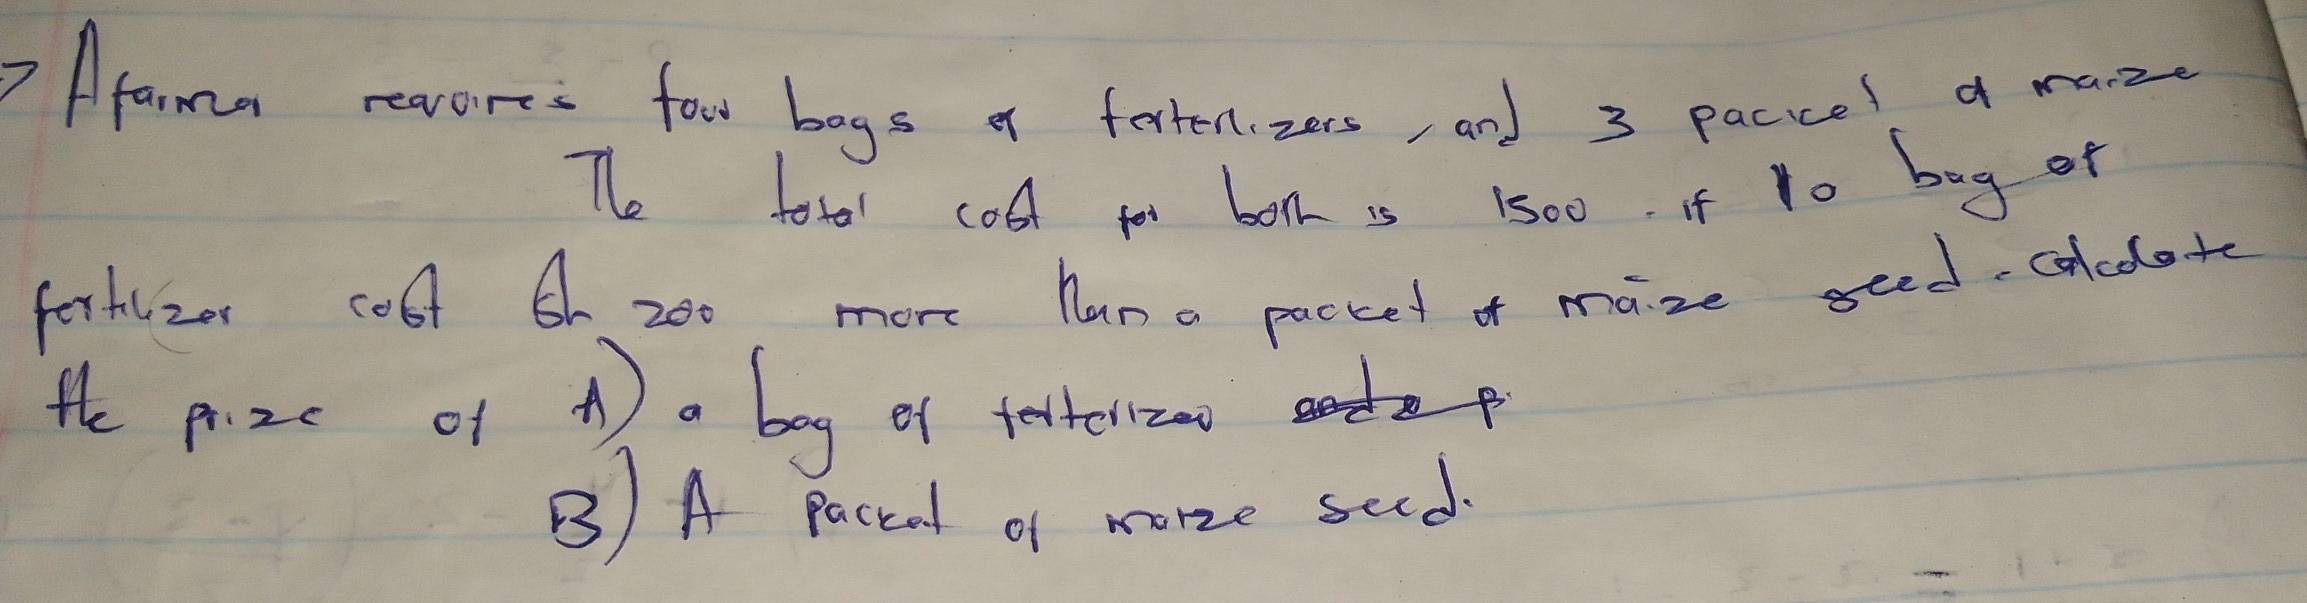 > A farmer requires four bags of ferterlizers, and 3 packet of maize
The total cost for both is 1500. if 10 bag of
fertilizer cost Sh 200 more than a packet of maize seed. calculate
the prize of A) a bag of ferterlizer
B) A packet of maize seed.